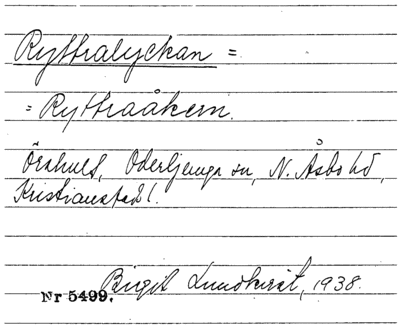 Ryttralyckan =
= Ryttraåkern.
Örahult, Oderljunga sn, N. Åsbo hd,
Kristianstads l.
Birgit Lundkvist, 1938.
Nr 5499.